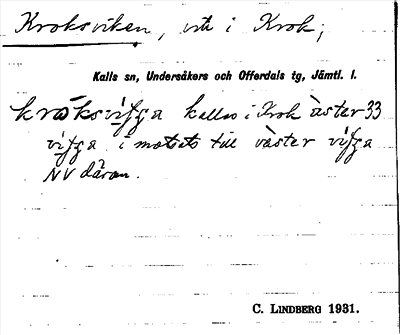 Kroksviken, vik i Krok;
Kalls sn, Undersåkers och Offerdals tg, Jämtl. l.
kro̊ksvi̇ʃʒa kallas i Krok àster 33
viʃʒa i motsats till vàster viʃʒa
NV därom.
C. LINDBERG 1931.